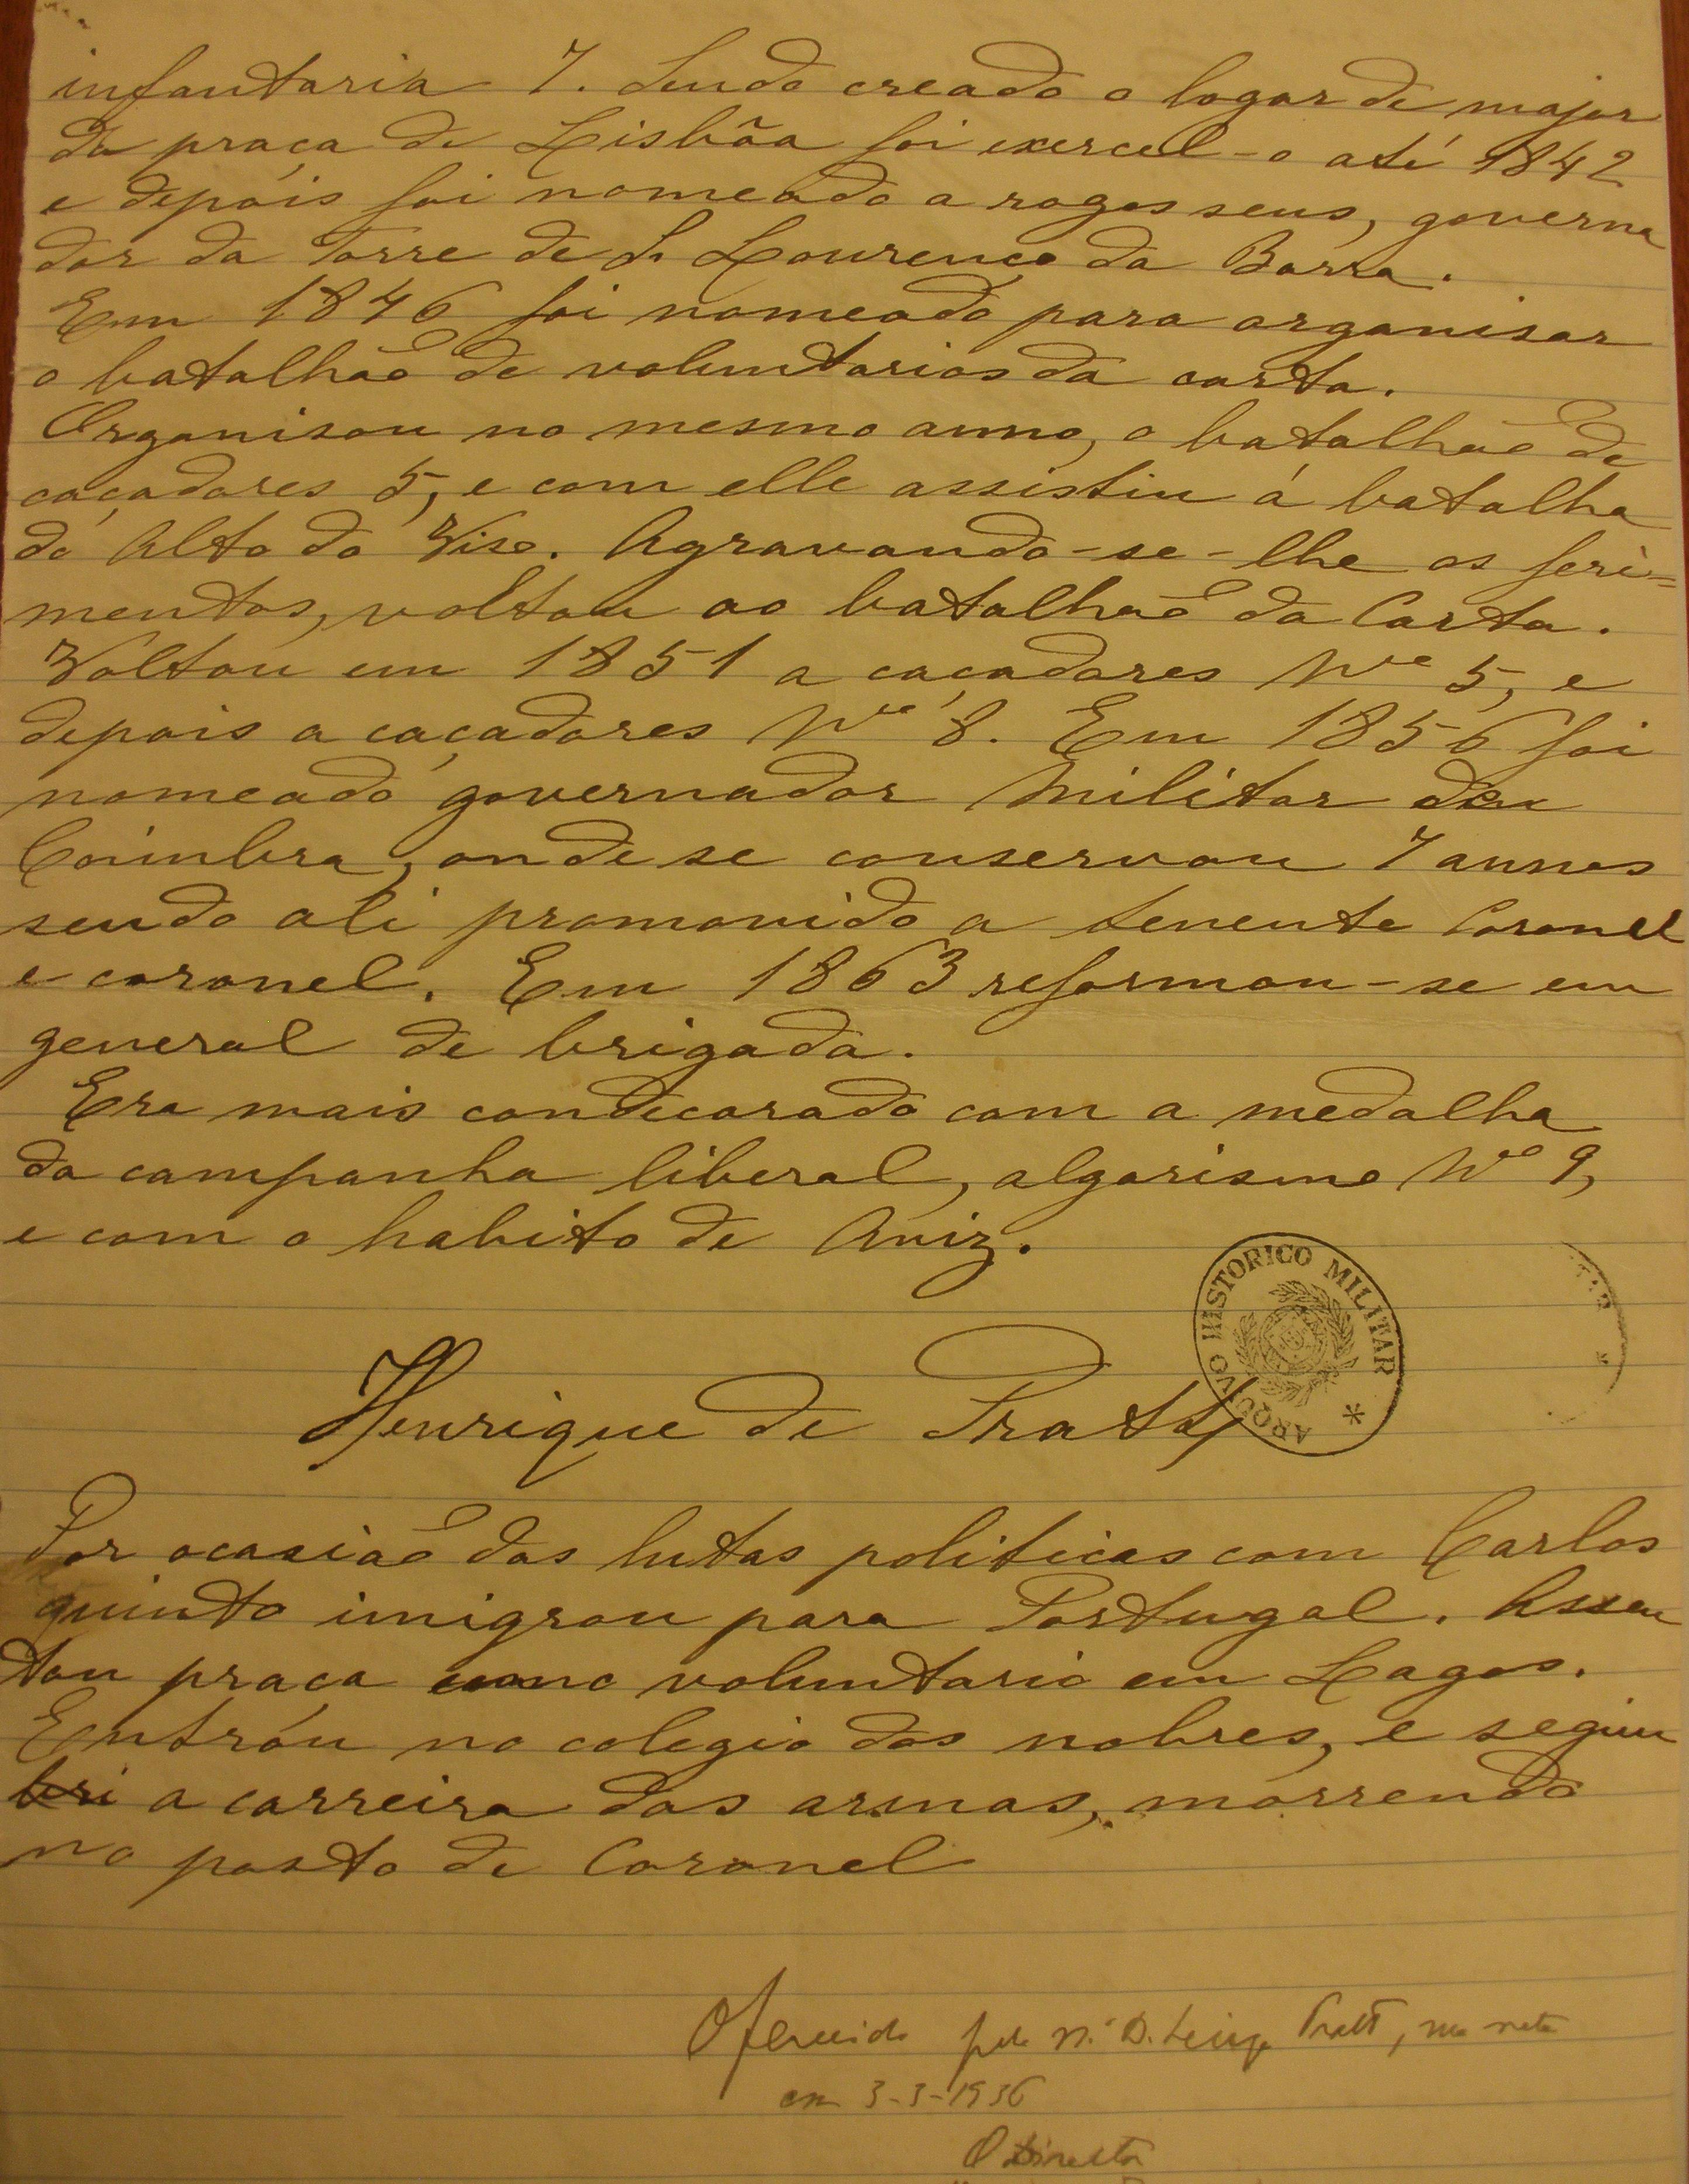 infantaria 7. Sendo creado o logar de major
da praça de Lisbôa foi exercel-o até 1842
e depois foi nomeado a rogos seus, governa
dor da Torre de S. Lourenço da Barra.
Em 1846 foi nomeado para organisar
o batalhão de voluntarios da carta.
Organisou no mesmo anno, o batalhão de
caçadores 5, e com elle assistiu á batalha
do Alto do Viso. Agravando-se-lhe os feri=
mentos, voltou ao batalhão da Carta.
Voltou em 1851 a caçadores Nº 5, e
depois a caçadores Nº 8. Em 1856 foi
nomeado governador Militar de
Coimbra, onde se conservou 7 annos
sendo ali promovido a tenente Coronel
e coronel. Em 1863 reformou-se em
general de brigada.
Era mais condecorado com a medalha
da campanha liberal, algarismo Nº 9,
e com o habito de Aviz.
ARQUIVO HISTORICO MILITAR *
Henrique de Pratt
Por ocasião das lutas politicas com Carlos
quinto imigrou para Portugal. Assen
tou praça como voluntario em Lagos.
Entrou no colegio dos nobres, e seguiu
a carreira das armas, morrendo
no posto de Coronel
Oferecido pela D. Pratt, neta
em 3-3-1936
O Director